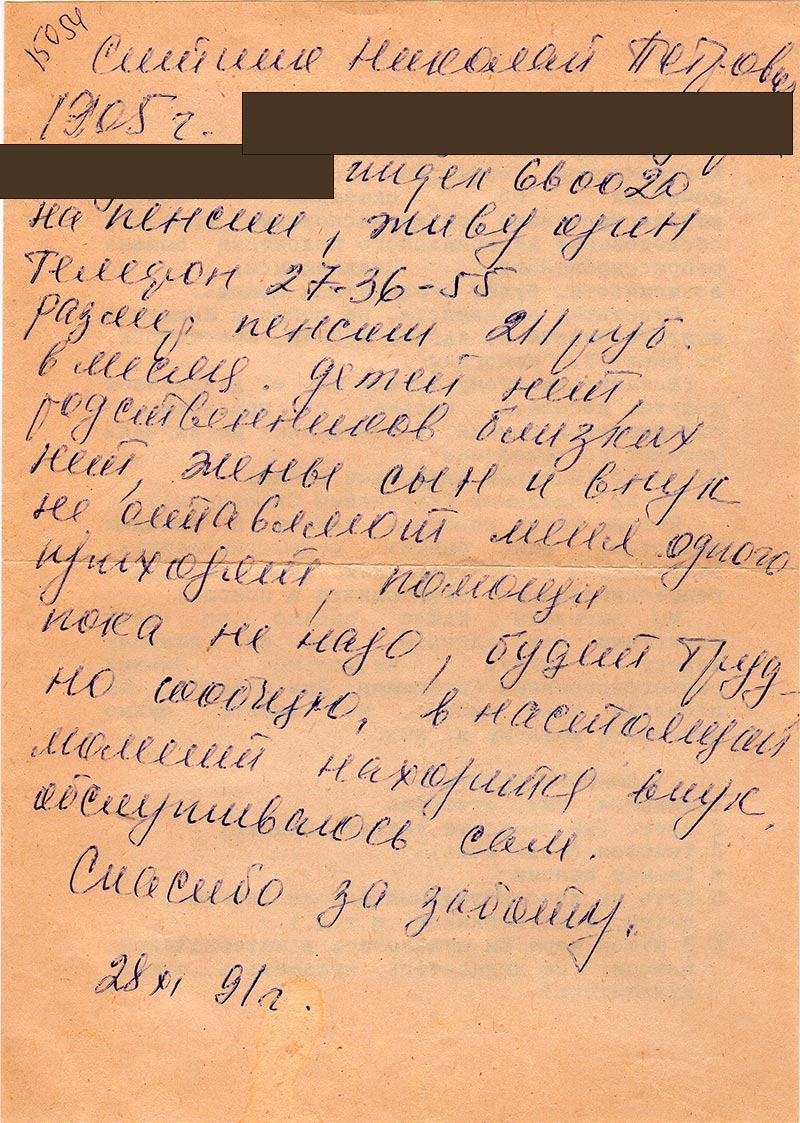 15054
Николай Петрович
1905 г.
индек 660020
на пенсии, живу один
Телефон 27-36-55
размер пенсии 211 руб.
в месяц. детей нет,
родственников близких
нет, жены сын и внук
не оставляют меня одного
приходят, помощи
пока не надо, будет Труд-
но сообщу, в настоящей
момент находится внук,
обслуживаюсь сам.
Спасибо за заботу.
28 XI 91 г.